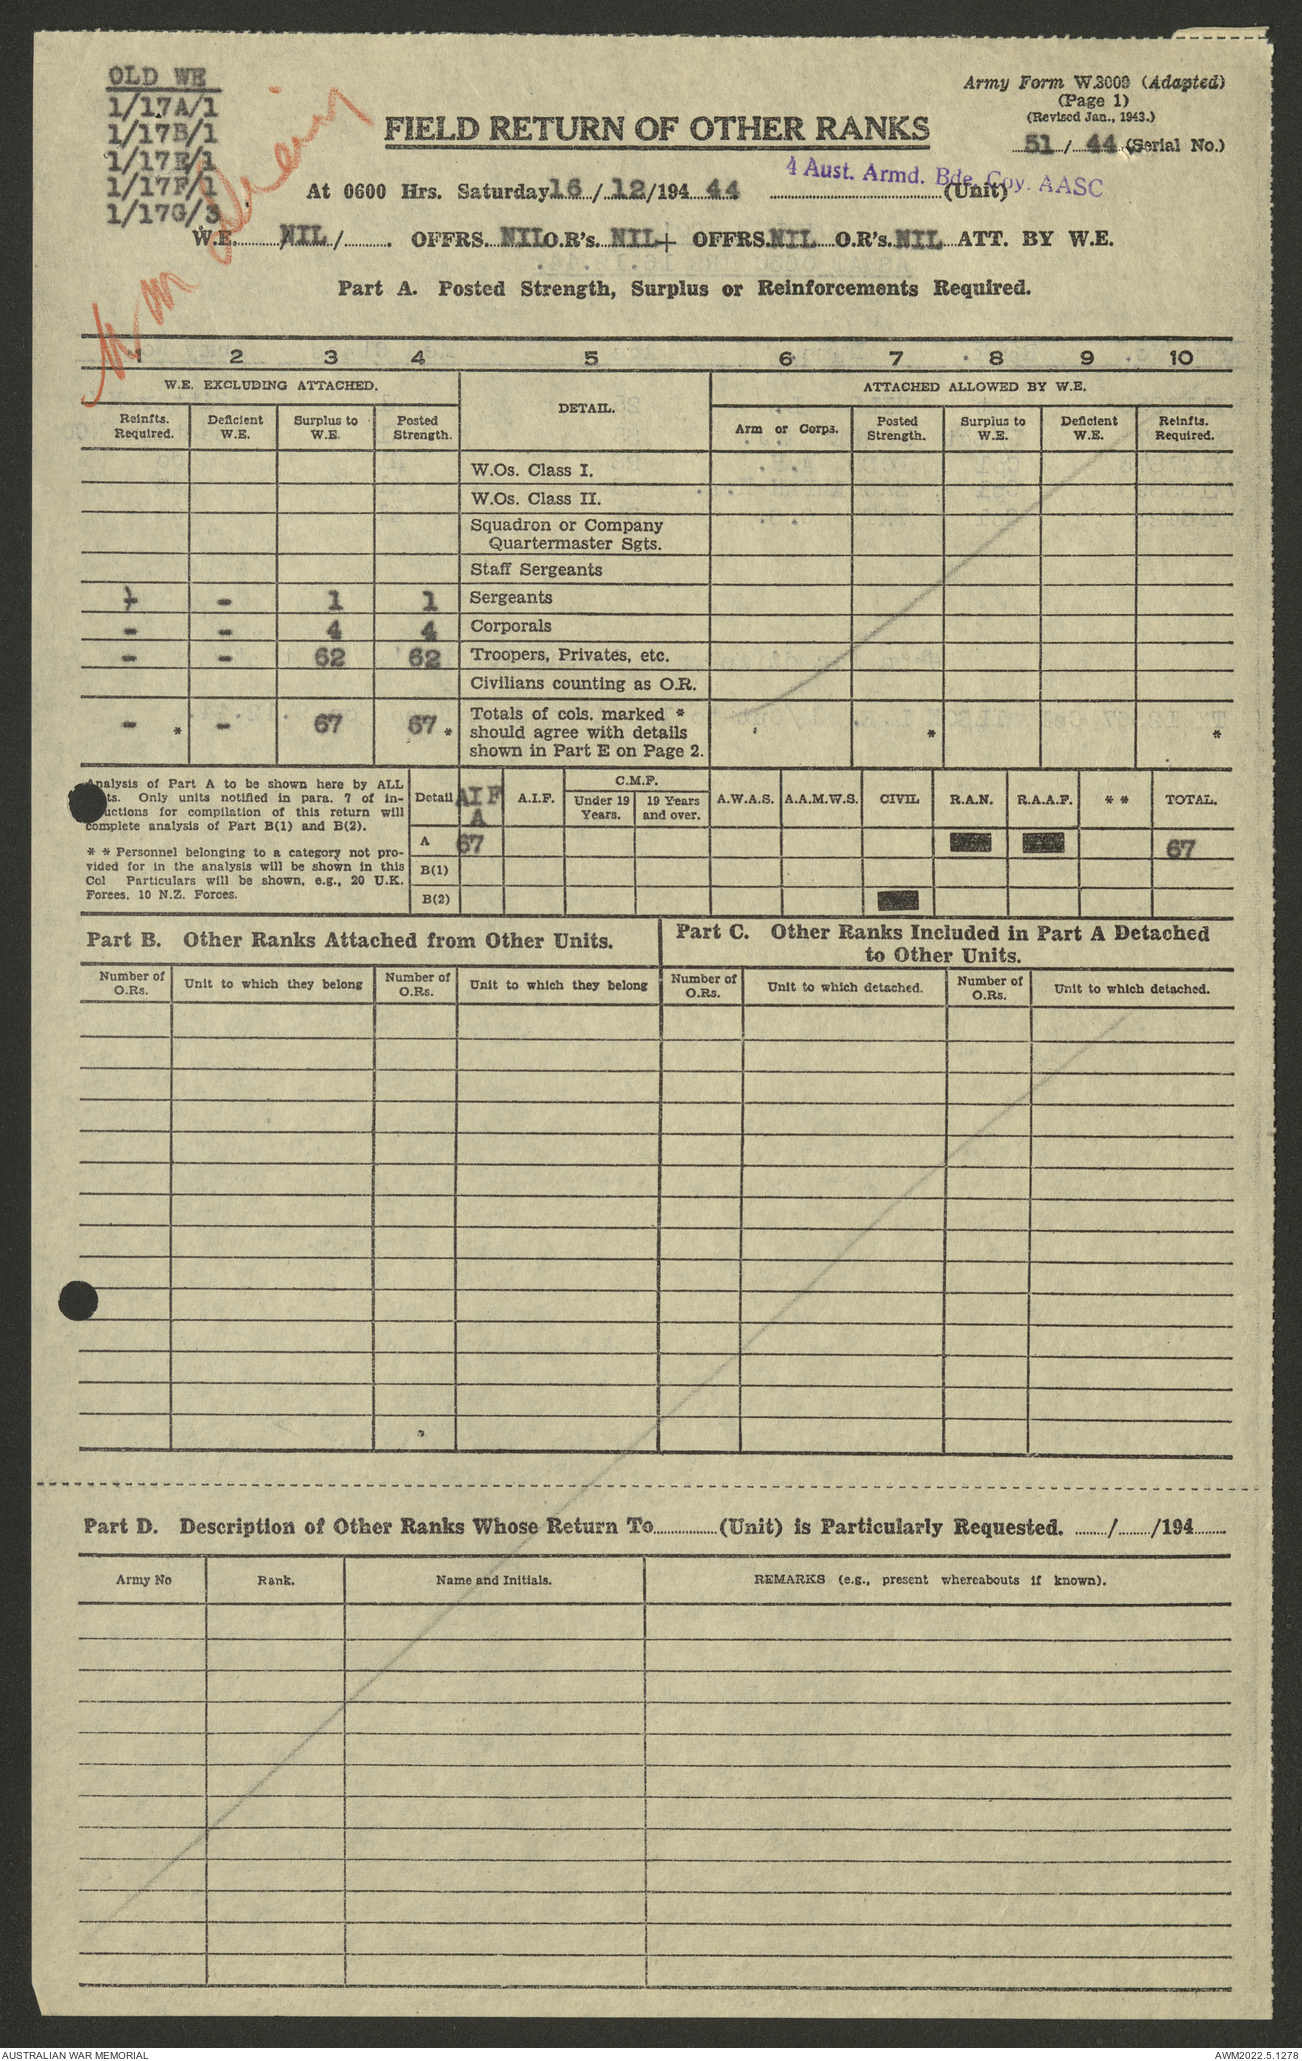 OLD WE
1/17A/1
1/17B/1
1/17E/1
1/17F/1
1/17G/3
Army Form W.3009 (Adapted)
(Page 1)
(Revised Jan., 1943.)
51 / 44 (Serial No.)
FIELD RETURN OF OTHER RANKS
At 0600 Hrs. Saturday 16 / 12 /194 44 4 Aust. Armd. Bde. Coy. AASC (Unit)
W.E. / NIL / . OFFRS. NIL O.R's. NIL + OFFRS. NIL O.R's. NIL ATT. BY W.E.
Part A. Posted Strength, Surplus or Reinforcements Required.
1 2 3 4 5 6 7 8 9 10
W.E. EXCLUDING ATTACHED. DETAIL. ATTACHED ALLOWED BY W.E.
Reinfts. Required. Deficient W.E. Surplus to W.E. Posted Strength. Arm or Corps. Posted Strength. Surplus to W.E. Deficient W.E. Reinfts. Required.
W.Os. Class I.
W.Os. Class II.
Squadron or Company
Quartermaster Sgts.
Staff Sergeants
- - 1 1 Sergeants
- - 4 4 Corporals
- - 62 62 Troopers, Privates, etc.
Civilians counting as O.R.
- * - 67 67 * Totals of cols. marked *
should agree with details * *
shown in Part E on Page 2.
Analysis of Part A to be shown here by ALL
ts. Only units notified in para. 7 of in-
uctions for compilation of this return will
complete analysis of Part B(1) and B(2).
* * Personnel belonging to a category not pro-
vided for in the analysis will be shown in this
Col Particulars will be shown, e.g., 20 U.K.
Forces, 10 N.Z. Forces.
Detail AIF A A.I.F. C.M.F. Under 19 Years. 19 Years and over. A.W.A.S. A.A.M.W.S. CIVIL R.A.N. R.A.A.F. * * TOTAL.
A 67 67
B(1)
B(2)
Part B. Other Ranks Attached from Other Units.
Part C. Other Ranks Included in Part A Detached
to Other Units.
Number of O.Rs. Unit to which they belong Number of O.Rs. Unit to which they belong Number of O.Rs. Unit to which detached. Number of O.Rs. Unit to which detached.
Part D. Description of Other Ranks Whose Return To (Unit) is Particularly Requested. / /194
Army No Rank. Name and Initials. REMARKS (e.g., present whereabouts if known).
AUSTRALIAN WAR MEMORIAL AWM2022.5.1278